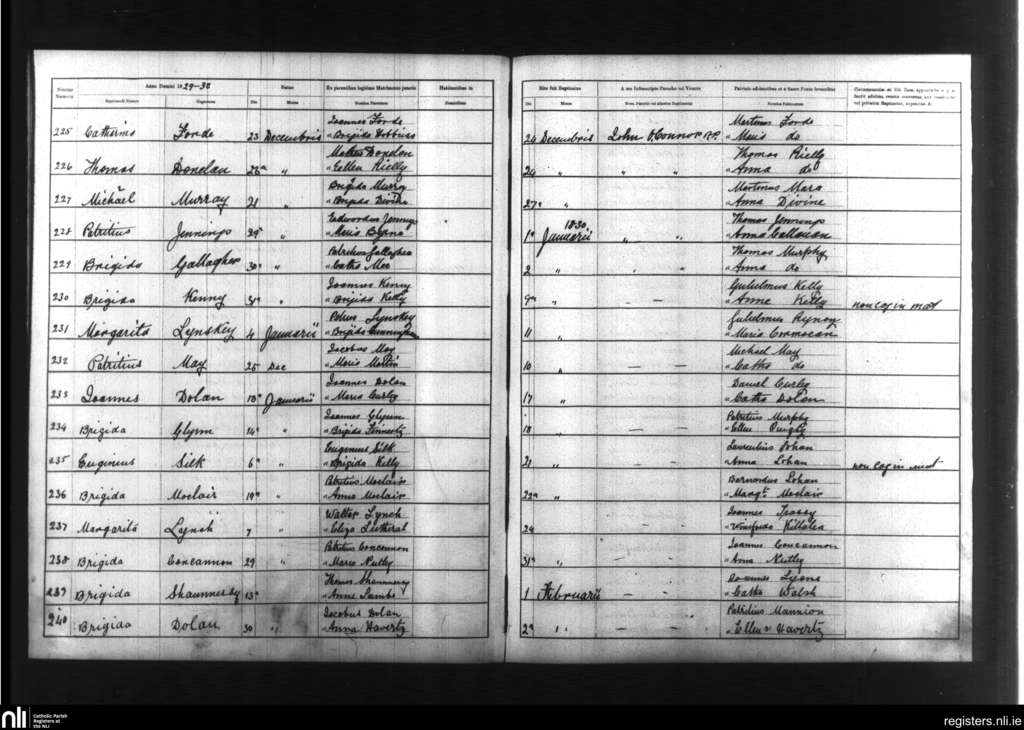 Anno Domini 1829-30
Natus
Ex parentibus legitimo Matrimonio junctis
Habitantibus in
Die
Mense
Nomina Parentum
Domicilium
225 Catherins Forde 23 Decembris Joannes Forde
" Brigida Hobbins
226 Thomas Donelan 23a " Donelan
" Ellen Rielly
227 Michael Murray 21 " Brigida Murry
" Brigida Divine
228 Patritius Jennings " Eadwardus Jennings
" Maria Byrne
229 Brigida Gallagher 30a " Patritius Gallagher
" Catha
230 Brigida Kenny 31a " Joannes Kenny
" Brigida Kelly
231 Margarita Lynskey 4 Januarii Lynskey
" Brigida Cunningham
232 Patritius May 25 Dec Jacobus May
" Maria Martin
233 Joannes Dolan 13a Januarii Joannes Dolan
" Maria Curley
234 Brigida Glynn 14a " Joannes Glynn
" Brigida Finnerty
235 Eugenius Silk 6a " Eugenius Silk
" Brigida Kelly
236 Brigida Moclair 19a " Patritius Moclair
" Anna Moclair
237 Margarita Lynch 7 " Walter Lynch
" Eliza
238 Brigida Concannon 29 " Patritius Concannon
" Maria Nutley
239 Brigida Shaunnessy 13a Thomas Shaunnessy
" Anne Lambe
240 Brigida Dolan 30 " Jacobus Dolan
" Anna Haverty
Rite fuit Baptizatus
A me Infrascripto Parocho vel Vicario
Patrinis adstantibus et a Sacro Fonte levantibus
Die
Mense
Nomina Patrinorum
24 Decembris John O'Connor P.P. Martinus Forde
" Maria do
24 " " " Thomas Rielly
" Anna do
27a " Martinus Mara
" Anna Divine
1a 1830 Januarii " " Thomas Jennings
" Anna Callanan
2 " " " Thomas Murphy
" Anna do
9a " — — Gulielmus Kelly
" Anne Kelly non cog in mat
11 " Gulielmus
" Maria Cormacan
10 " — — Michael May
" Catha do
17 " Daniel Curley
" Catha Dolan
18 " — — Patritius Murphy
" Ellen
21 " — — Laurentius Lohan
" Anna Lohan non cog in mat
22a " Bernardus Lohan
" Margt. Moclair
24 — — Joannes
" Winefrida Killalea
31a " — — Joannes Concannon
" Anna Nutley
1 Februarii — — Joannes Lyons
" Catha Walsh
2a " — — Patritius Mannion
" Ellen Haverty
nli
Catholic Parish
Registers at
the NLI
registers.nli.ie